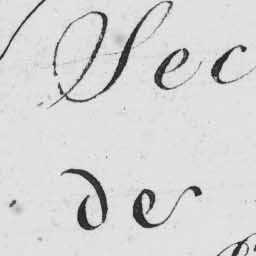 Sec
de